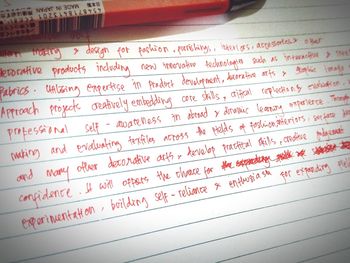 MADE IN JAPAN
making & design for fashion, furnishings, interiors, accessories & other
decorative products including new innovative technologies such as interactive &
fabrics. Utilizing expertise in Product development, decorative arts & graphic
Approach projects creatively embedding core skills, critical reflection & evaluation,
professional self-awareness in abroad & dynamic learning experience. Through
making and evaluating textiles across the fields of fashion, interiors, surface
and many other decorative arts, develop practical skills, creative
confidence. It will offers the chance for
experimentation, building self-reliance & enthusiasm for expanding